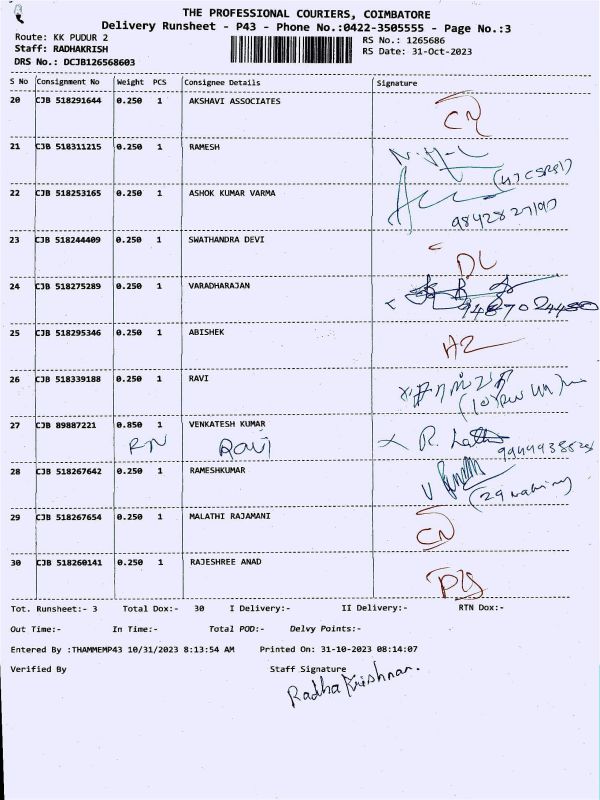 THE PROFESSIONAL COURIERS, COIMBATORE
Delivery Runsheet - P43 - Phone No.:0422-3505555 - Page No.:3
Route: KK PUDUR 2
RS No.: 1265686
Staff: RADHAKRISH
RS Date: 31-Oct-2023
DRS No.: DCJB126568603
S No Consignment No Weight PCS Consignee Details Signature
20 CJB 518291644 0.250 1 AKSHAVI ASSOCIATES
CN
21 CJB 518311215 0.250 1 RAMESH
22 CJB 518253165 0.250 1 ASHOK KUMAR VARMA
9842827190
23 CJB 518244409 0.250 1 SWATHANDRA DEVI
DL
24 CJB 518275289 0.250 1 VARADHARAJAN
9487024450
25 CJB 518295346 0.250 1 ABISHEK
26 CJB 518339188 0.250 1 RAVI
27 CJB 89887221 0.850 1 VENKATESH KUMAR
RN Ravi
28 CJB 518267642 0.250 1 RAMESHKUMAR
29 CJB 518267654 0.250 1 MALATHI RAJAMANI
CN
30 CJB 518260141 0.250 1 RAJESHREE ANAD
Tot. Runsheet:- 3 Total Dox:- 30 I Delivery:- II Delivery:- RTN Dox:-
Out Time:- In Time:- Total POD:- Delvy Points:-
Entered By :THAMMEMP43 10/31/2023 8:13:54 AM Printed On: 31-10-2023 08:14:07
Verified By Staff Signature
Radha Krishnan.